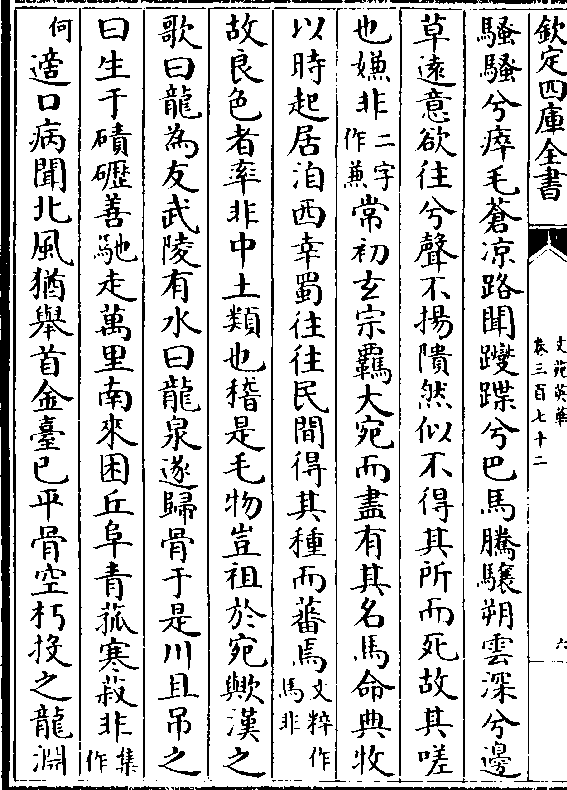 欽定四庫全書
文苑英華
卷三百七十二
六
騷騷兮瘁毛蒼凉路聞躞蹀兮巴馬騰驤朔雲深兮邊
草遠意欲往兮聲不揚隤然似不得其所而死故其嗟
也嫌非二字作兼常初玄宗羈大宛而盡有其名馬命典牧
以時起居洎西幸蜀往往民間得其種而蕃焉文粹作馬非
故良色者率非中土類也稽是毛物豈祖於宛歟漢之
歌曰龍為友武陵有水曰龍泉遂歸骨于是川且弔之
曰生于磧礰善馳走萬里南來困丘阜青菰寒菽非集作
何適口病聞北風猶舉首金臺已平骨空朽投之龍淵